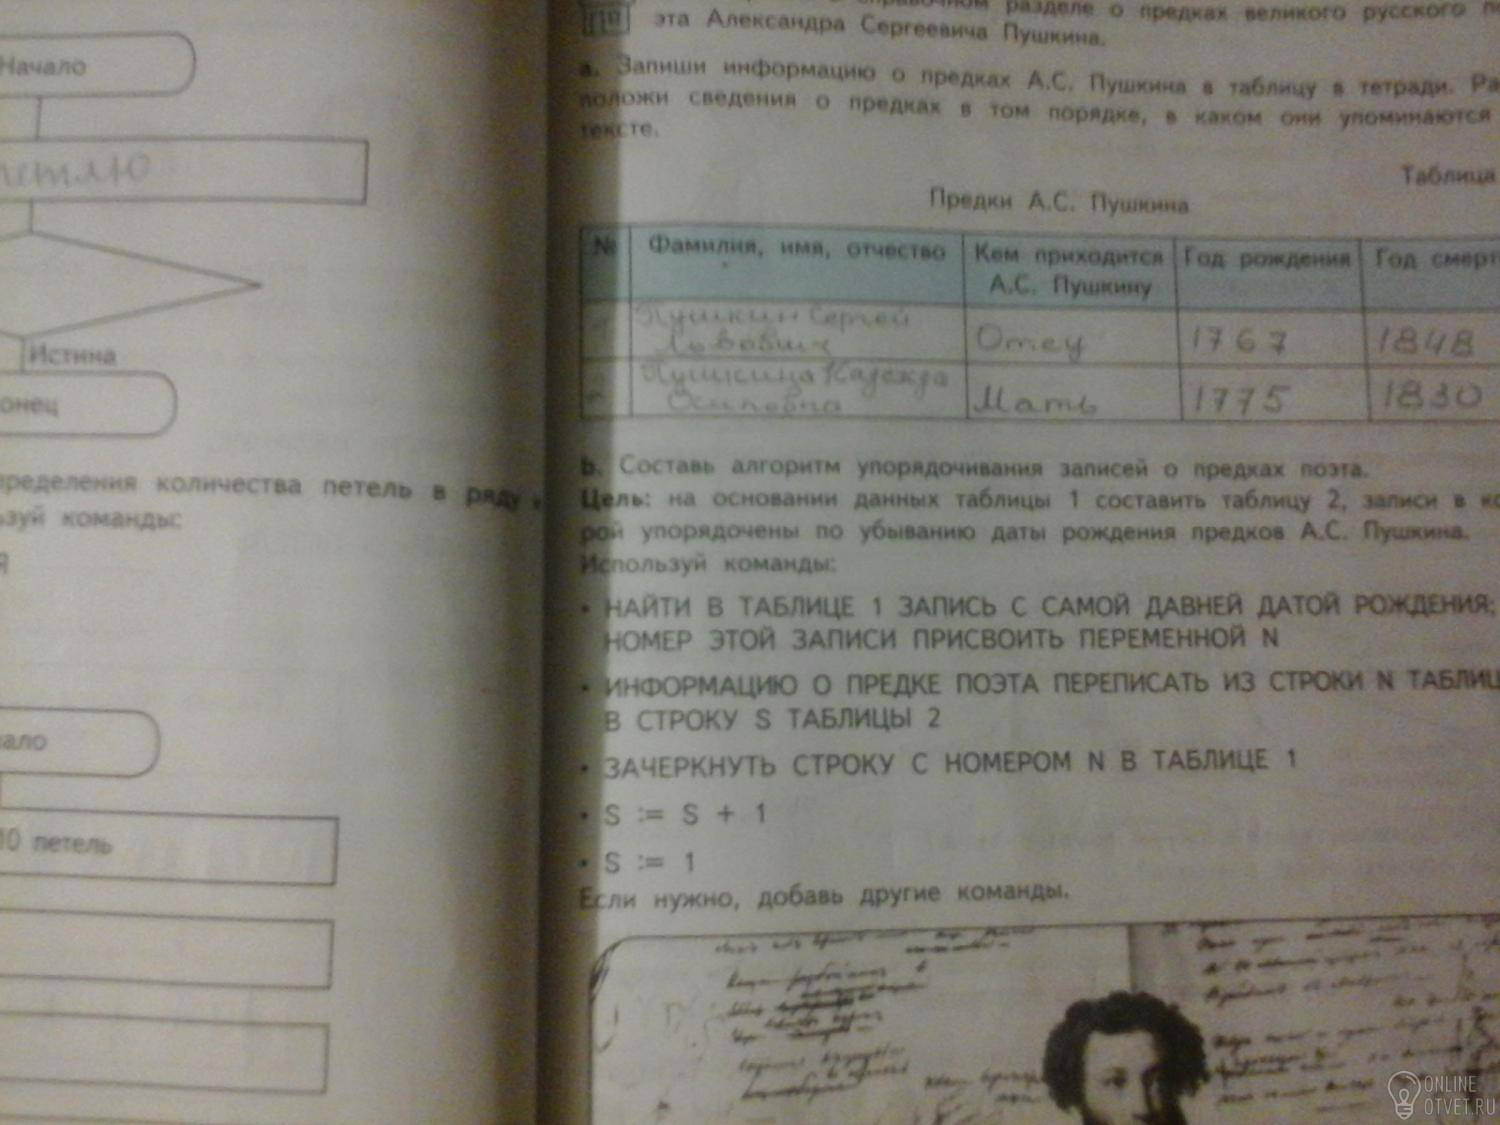 Начало
петлю
Истина
онец
пределения количества петель в ряду
ьзуй команды:
Я
ало
10 петель
справочном разделе о предках великого русского по
эта Александра Сергеевича Пушкина.
а. Запиши информацию о предках А.С. Пушкина в таблицу в тетради. Ра
положи сведения о предках в том порядке, в каком они упоминаются
тексте.
Таблица
Предки А.С. Пушкина
№ Фамилия, имя, отчество Кем приходится Год рождения Год смерт
А.С. Пушкину
Пушкин Сергей
Львович Отец 1767 1848
Пушкина Надежда
Осиповна Мать 1775 1830
b. Составь алгоритм упорядочивания записей о предках поэта.
Цель: на основании данных таблицы 1 составить таблицу 2, записи в ко
рой упорядочены по убыванию даты рождения предков А.С. Пушкина.
Используй команды:
• НАЙТИ В ТАБЛИЦЕ 1 ЗАПИСЬ С САМОЙ ДАВНЕЙ ДАТОЙ РОЖДЕНИЯ;
НОМЕР ЭТОЙ ЗАПИСИ ПРИСВОИТЬ ПЕРЕМЕННОЙ N
• ИНФОРМАЦИЮ О ПРЕДКЕ ПОЭТА ПЕРЕПИСАТЬ ИЗ СТРОКИ N ТАБЛИЦ
В СТРОКУ S ТАБЛИЦЫ 2
• ЗАЧЕРКНУТЬ СТРОКУ С НОМЕРОМ N В ТАБЛИЦЕ 1
• S := S + 1
• S := 1
Если нужно, добавь другие команды.
ONLINE
OTVET.RU